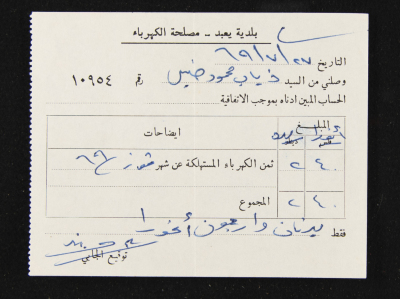 بلدية يعبد - مصلحة الكهرباء
التاريخ ٢٧/٧/٦٩
وصلني من السيد ذياب محمود خليل رقم ١٠٩٥٤
الحساب المبين ادناه بموجب الاتفاقية
المبلغ ايضاحات
٤٠ ٢ ثمن الكهرباء المستهلكة عن شهر تموز ٦٩
٤٠ ٢ المجموع
فقط ليرتان واربعون أغورا
توقيع الجابي